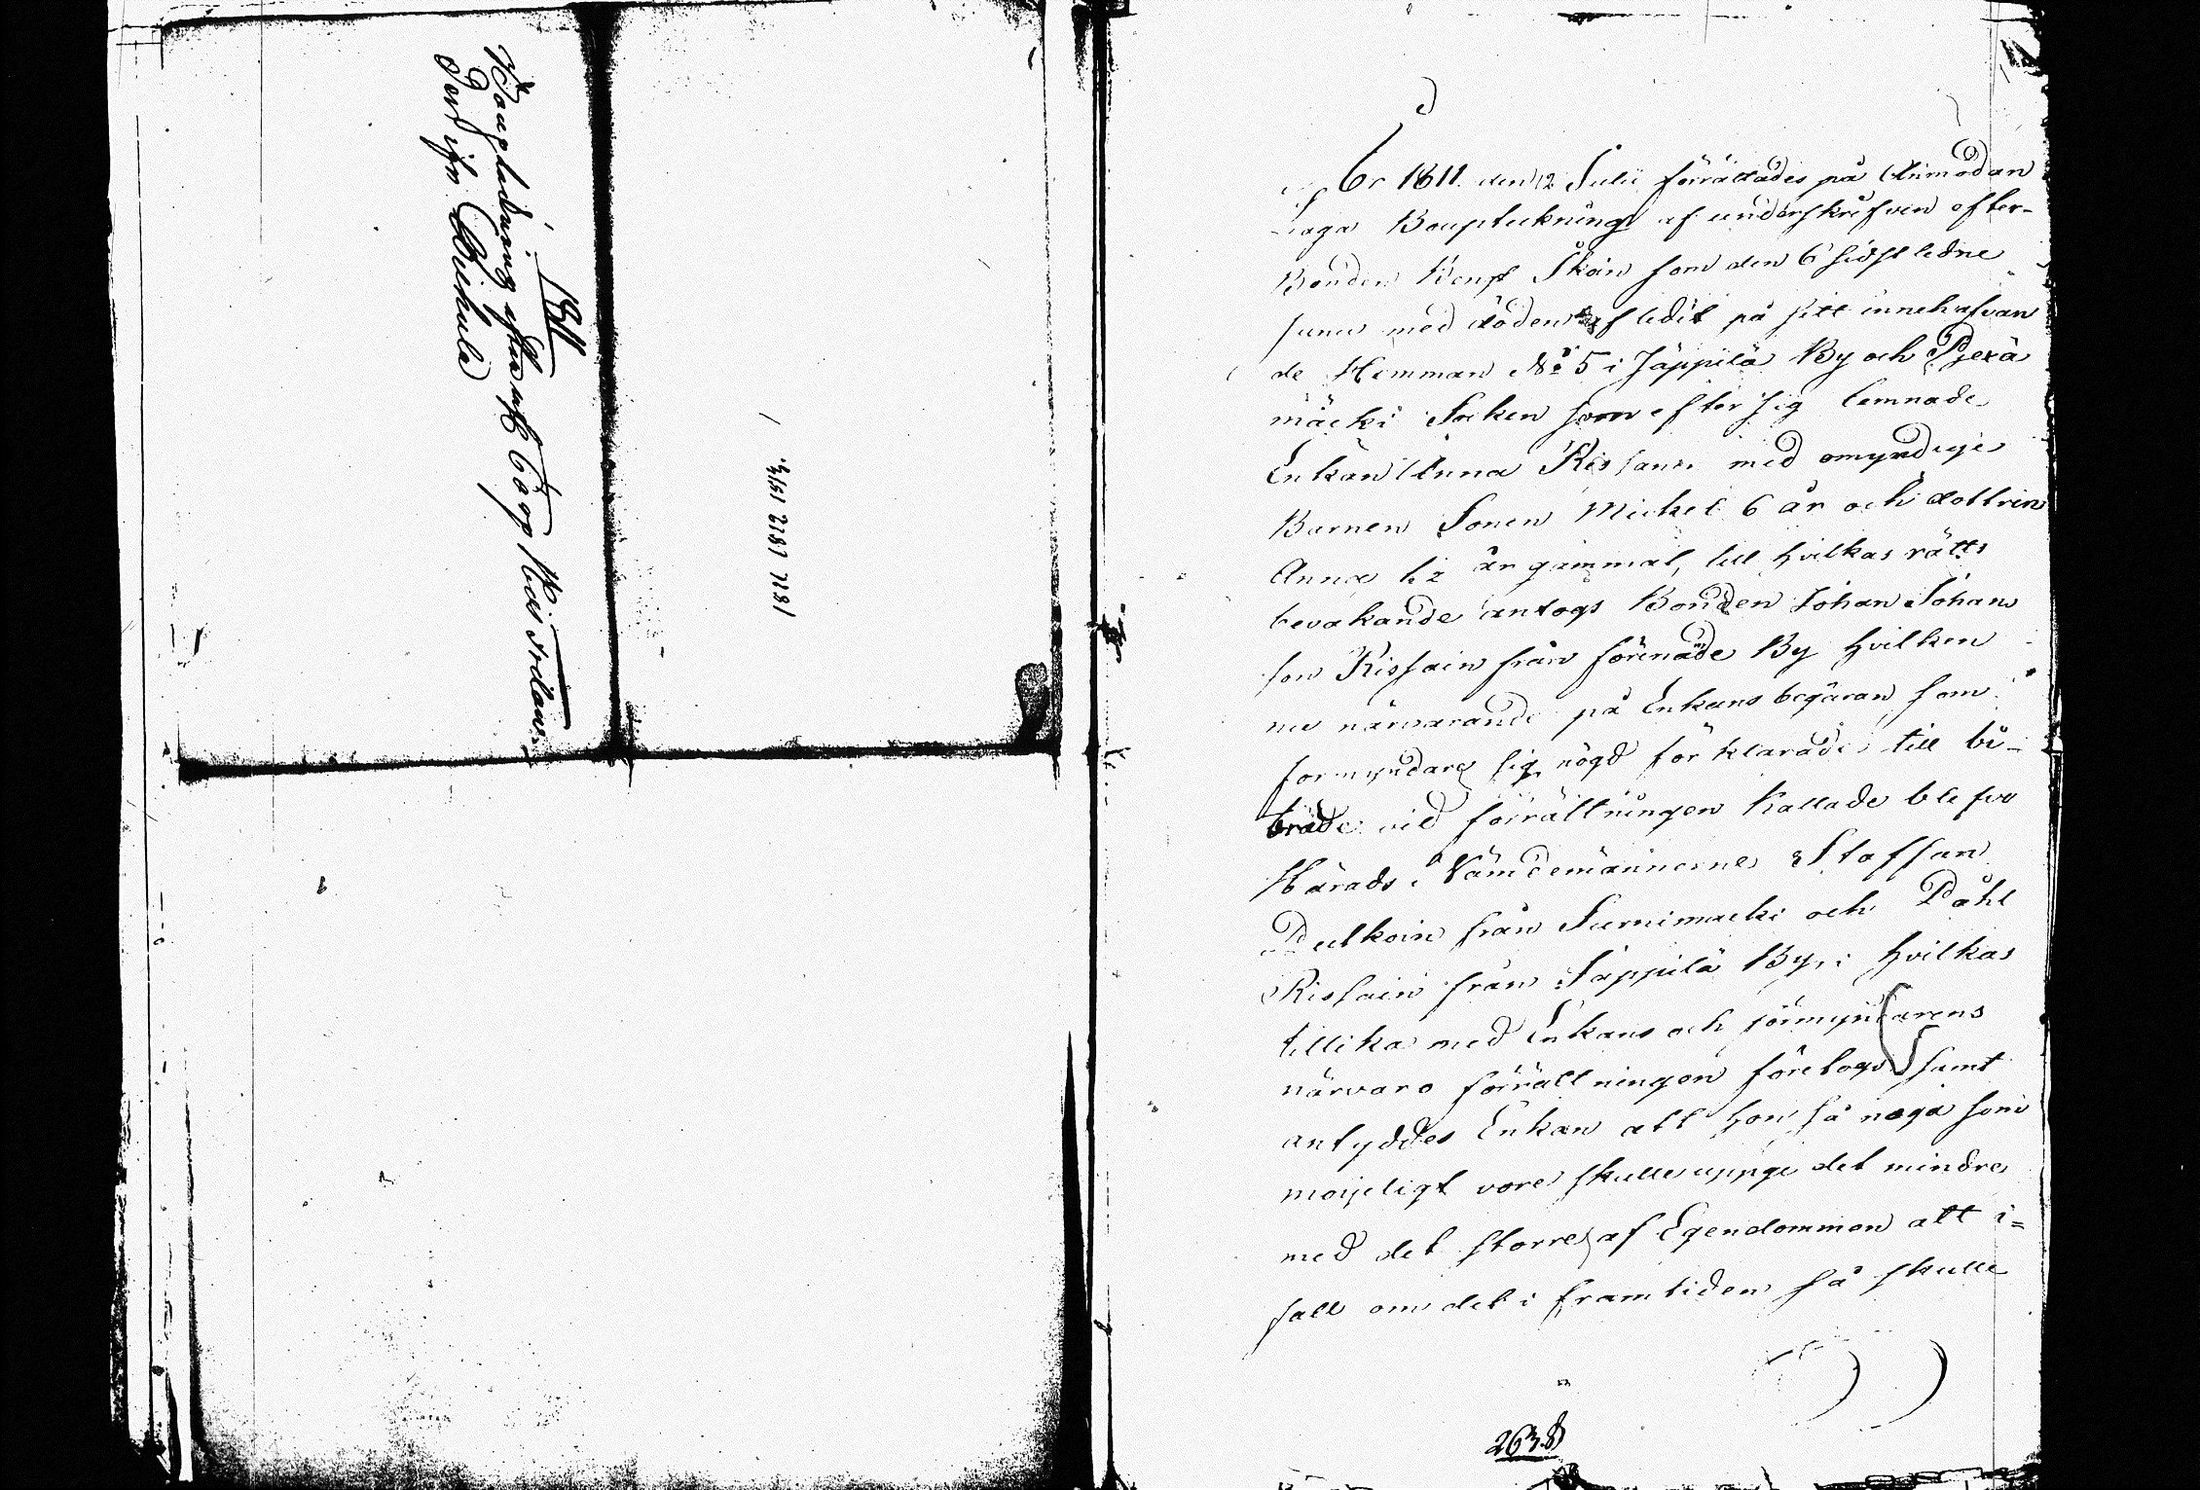 1811
År 1811 den 12 Julii förrättades på Anmodan
laga Bouptekning af underskrifven efter
Bonden Bengt Skön som den 6 sidstledne
med döden afledit på sitt innehafvan
de Hemman No 5 i Jäppilä By och Pjexä
mäcki Socken som efter sig lemnade
Enkan Anna Rissanen med omyndige
Barnen Sonen Michel 6 år och dottren
Anna 1/2 år gammal, till hvilkas rätts
bevakande antogs Bonden Johan Johans
son Rissain från förenämde By hvilken
nu närvarande på Enkans begäran som
formyndare sig nögd förklarade till bi-
träde vid förrättningen kallade blefvo
Härads Nämdemännerne Staffan
Pulkoin från Surnimäcki och Påhl
Rissain från Jäppilä By, i hvilkas
tillika med Enkans och förmyndarens
närvaro förrättningen företogs samt
antyddes Enkan att hon så noga som
moijeligt vore skulle uppge det mindre
med det storre af Egendommen att i=
fall om det i framtiden så skulle
263.8